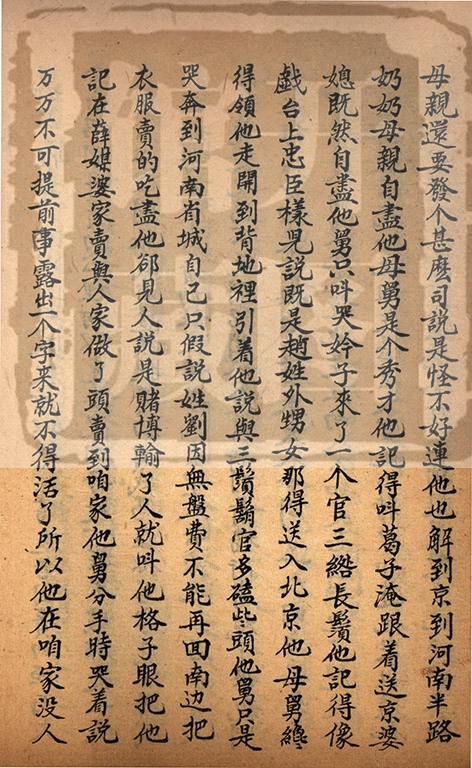 母親還要發个甚麽司說是怪不好連他也解到京到河南半路
奶奶母親自盡他母舅是个秀才他記得呌葛子淹跟着送京婆
媳既然自盡他舅只呌哭妗子來了一个官三綹長鬚他記得像
戲台上忠臣樣見說既是趙姓外甥女那得送入北京他母舅纔
得領他走開到背地裡引着他說與三鬚鬍官多磕些頭他舅只是
哭奔到河南省城自己只假說姓劉因無盤費不能再回南边把
衣服賣的吃盡他卻見人說是賭博輸了人就呌他格子眼把他
記在薛媒婆家賣與人家做了頭賣到咱家他舅分手時哭着說
万万不可提前事露出一个字来就不得活了所以他在咱家没人